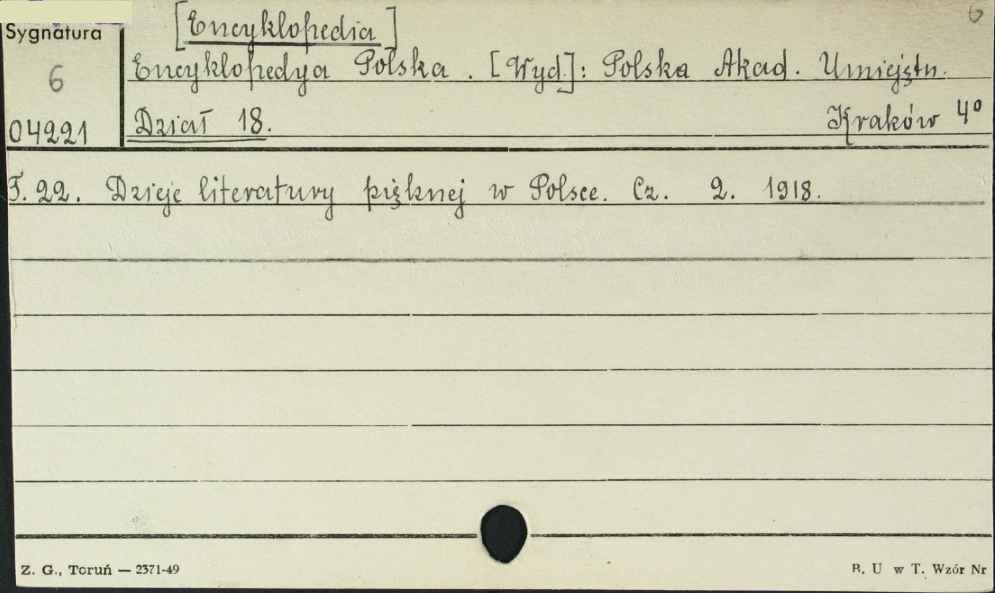 [Encyklopedia] 6
Sygnatura
6
04221
Encyklopedya Polska. [Wyd.]: Polska Akad. Umiejętn.
Dział 18. Kraków 4°
T. 22. Dzieje literatury pięknej w Polsce. Cz. 2. 1918.
Z. G., Toruń — 2371-49
B. U w T. Wzór Nr